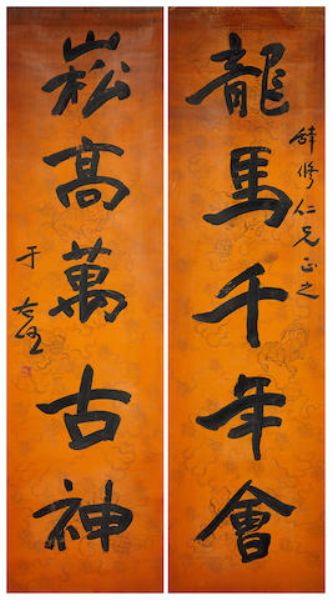 修仁兄正之
龍馬千年會
崧高萬古神
于右任